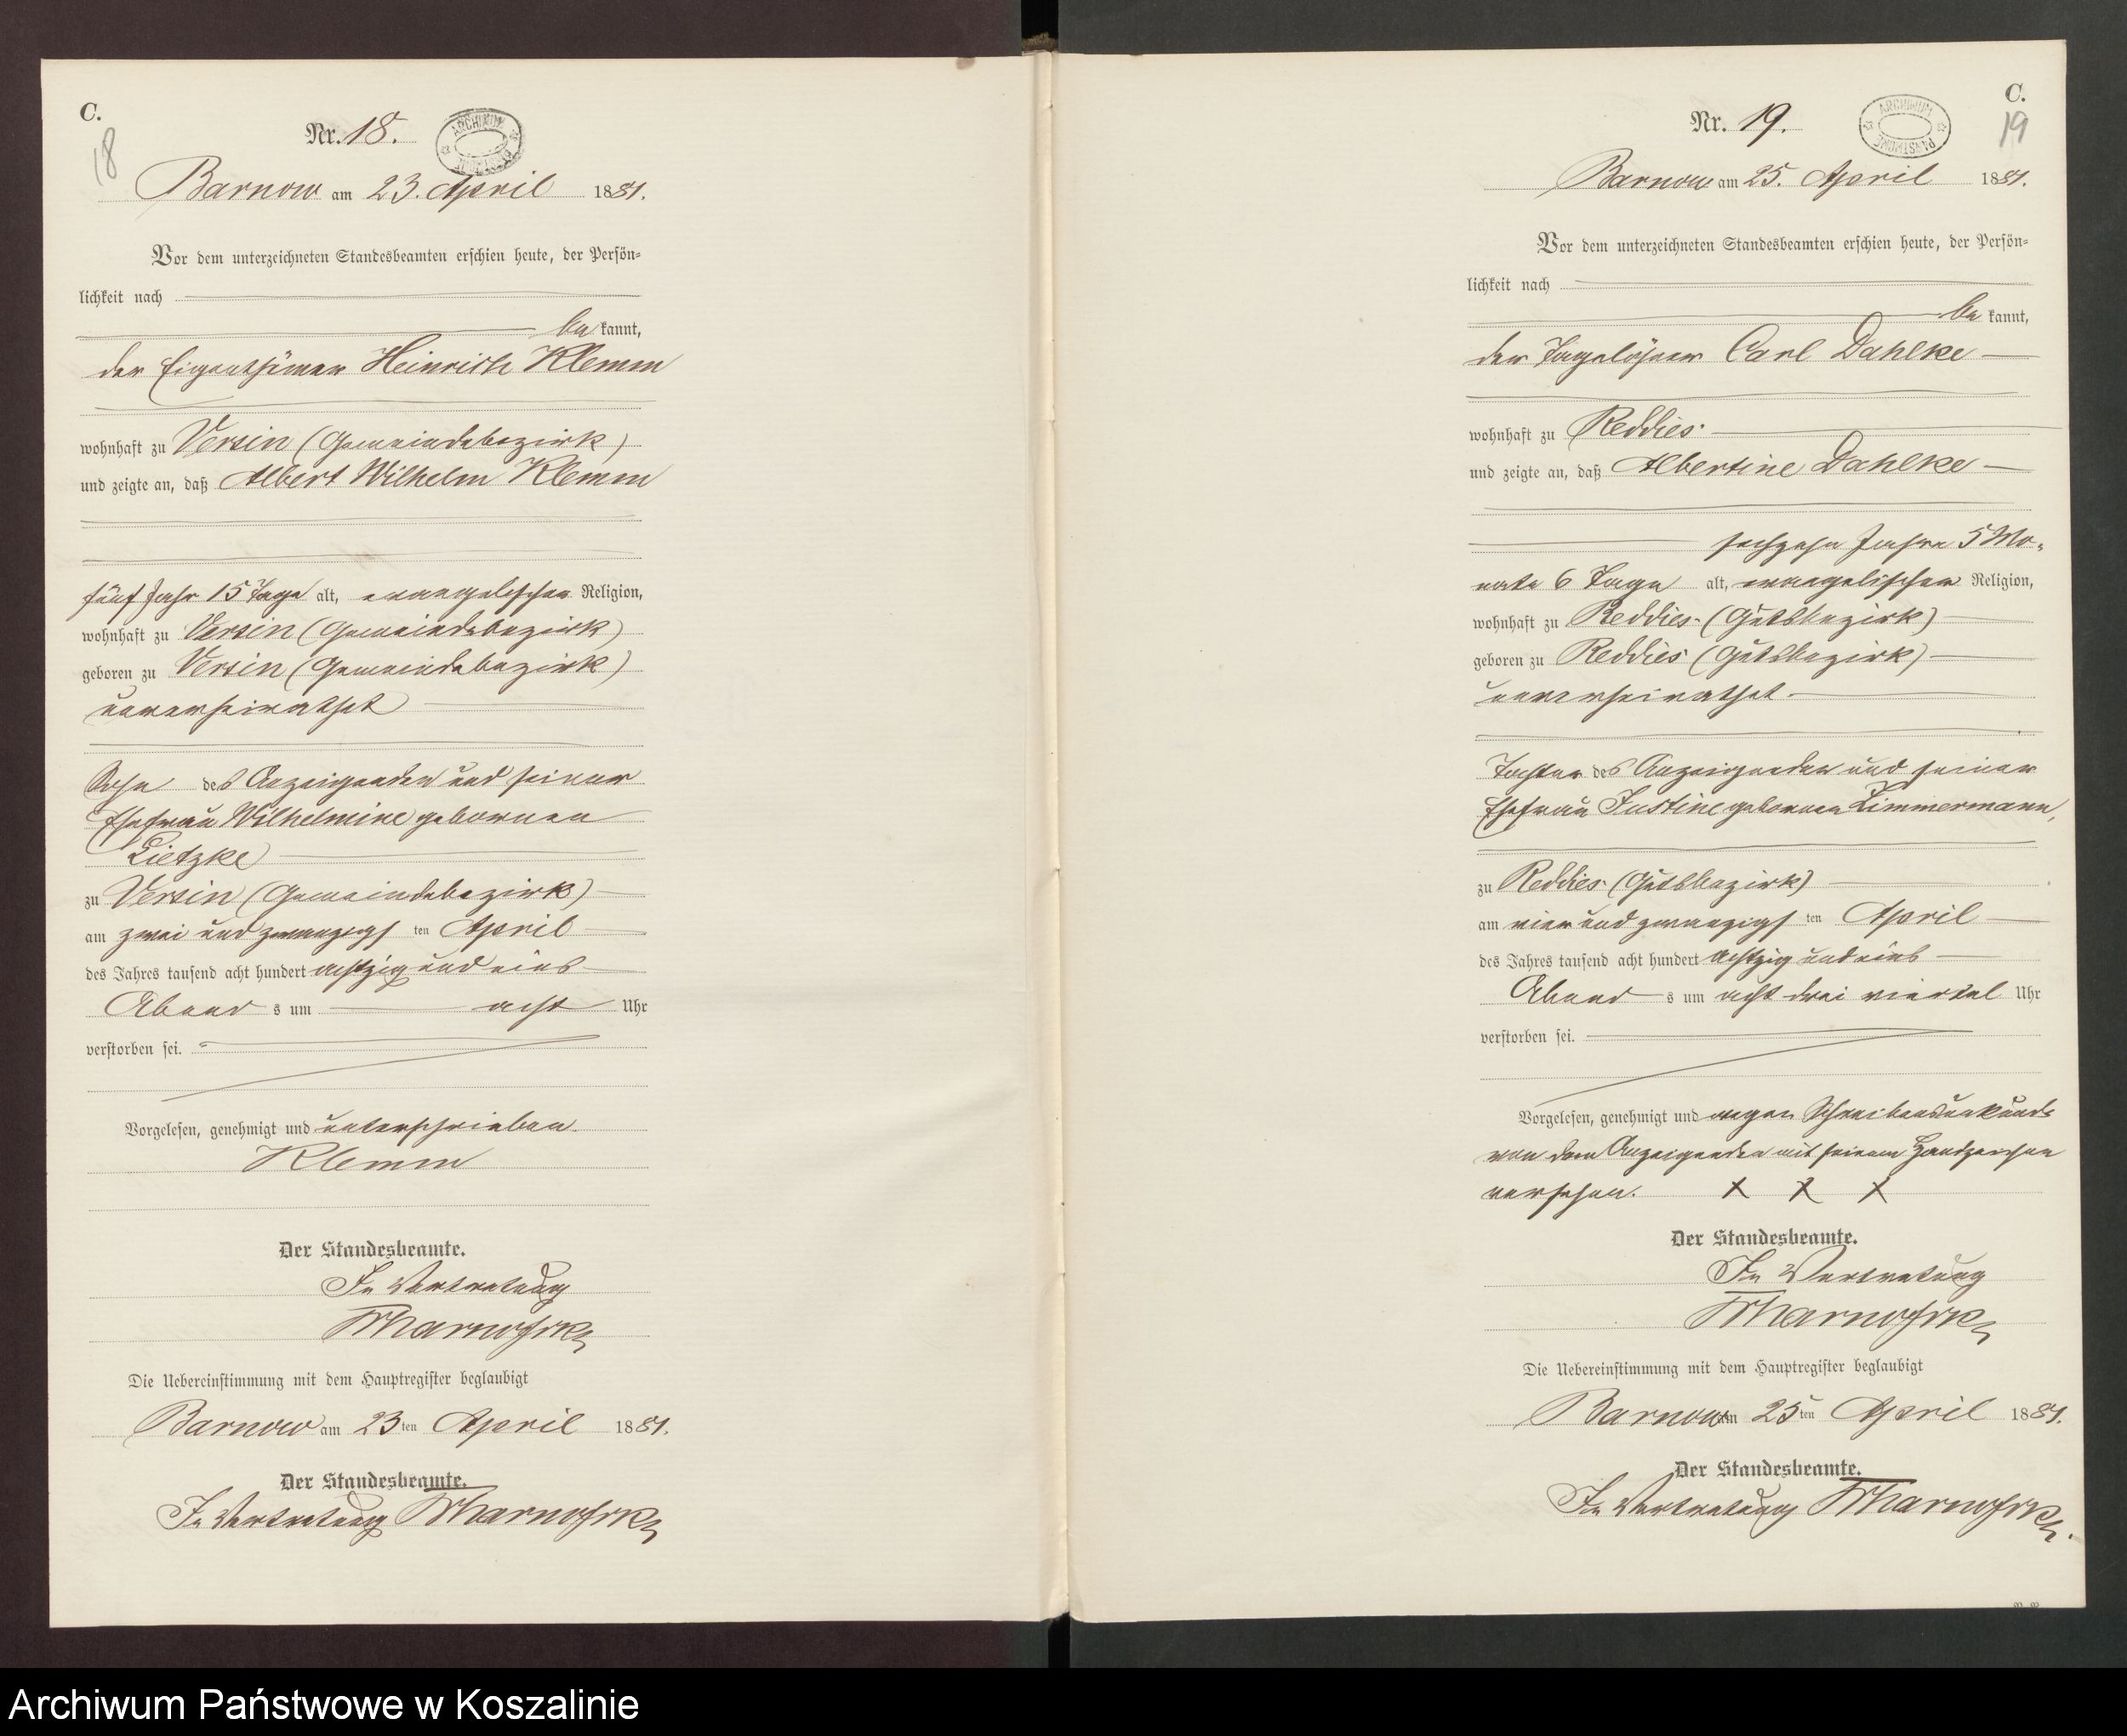 C.
18
Nr. 18.
ARCHIWUM PAŃSTWOWE
Barnow am 23. April 1881.
Vor dem unterzeichneten Standesbeamten erschien heute, der Persön-
lichkeit nach
bekannt,
der Eigenthümer Heinrich Klemm
wohnhaft zu Versin (Gemeindebezirk)
und zeigte an, daß Albert Wilhelm Klemm
fünf Jahr 15 Tage alt, evangelischer Religion,
wohnhaft zu Versin (Gemeindebezirk)
geboren zu Versin (Gemeindebezirk)
unverheirathet
Sohn des Anzeigenden und seiner
Ehefrau Wilhelmine geborenen
Lietzke
zu Versin (Gemeindebezirk)
am zwei und zwanzigsten April
des Jahres tausend acht hundert achtzig und eins
Abends um acht Uhr
verstorben sei.
Vorgelesen, genehmigt und unterschrieben.
Klemm
Der Standesbeamte.
In Vertretung
Die Uebereinstimmung mit dem Hauptregister beglaubigt
Barnow am 23ten April 1881.
Der Standesbeamte.
In Vertretung
C.
19
Nr. 19.
ARCHIWUM PAŃSTWOWE
Barnow am 25. April 1881.
Vor dem unterzeichneten Standesbeamten erschien heute, der Persön-
lichkeit nach
bekannt,
der Tagelöhner Carl Dahlke
wohnhaft zu Reddies
und zeigte an, daß Albertine Dahlke
sechzehn Jahre 5 Mo-
nate 6 Tage alt, evangelischer Religion,
wohnhaft zu Reddies (Gutsbezirk)
geboren zu Reddies (Gutsbezirk)
unverheirathet
Tochter des Anzeigenden und seiner
Ehefrau Justine geborenen Zimmermann,
zu Reddies (Gutsbezirk)
am vier und zwanzigsten April
des Jahres tausend acht hundert achtzig und eins
Abends um acht drei viertel Uhr
verstorben sei.
Vorgelesen, genehmigt und wegen Schreibensunkunde
von dem Anzeigenden mit seinem Handzeichen
versehen. X X X
Der Standesbeamte.
In Vertretung
Die Uebereinstimmung mit dem Hauptregister beglaubigt
Barnow am 25ten April 1881.
Der Standesbeamte.
In Vertretung
Archiwum Państwowe w Koszalinie